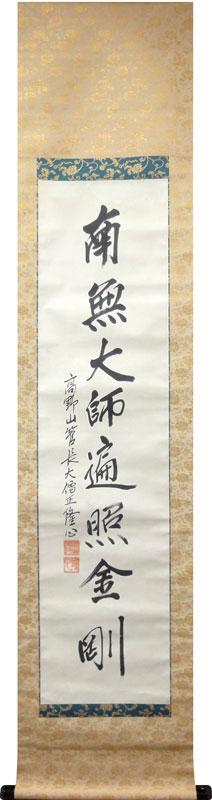 南無大師遍照金剛
高野山管長大僧正隆心